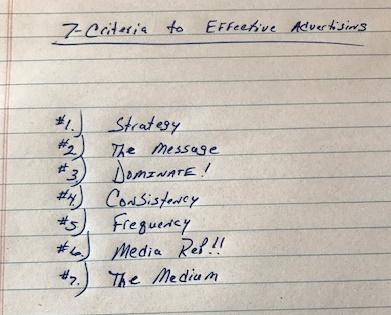 7-Criteria to Effective Advertising
#1.) Strategy
#2) The Message
#3) DOMINATE!
#4.) Consistency
#5) Frequency
#6.) Media Rep!!
#7.) The Medium